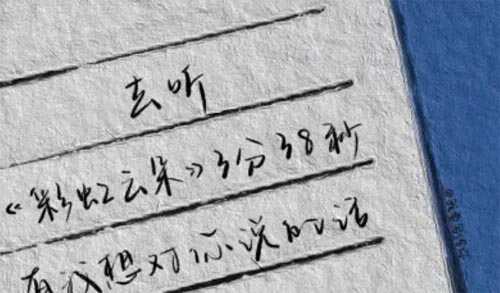 去听
《彩虹云朵》3分38秒
有我想对你说的话